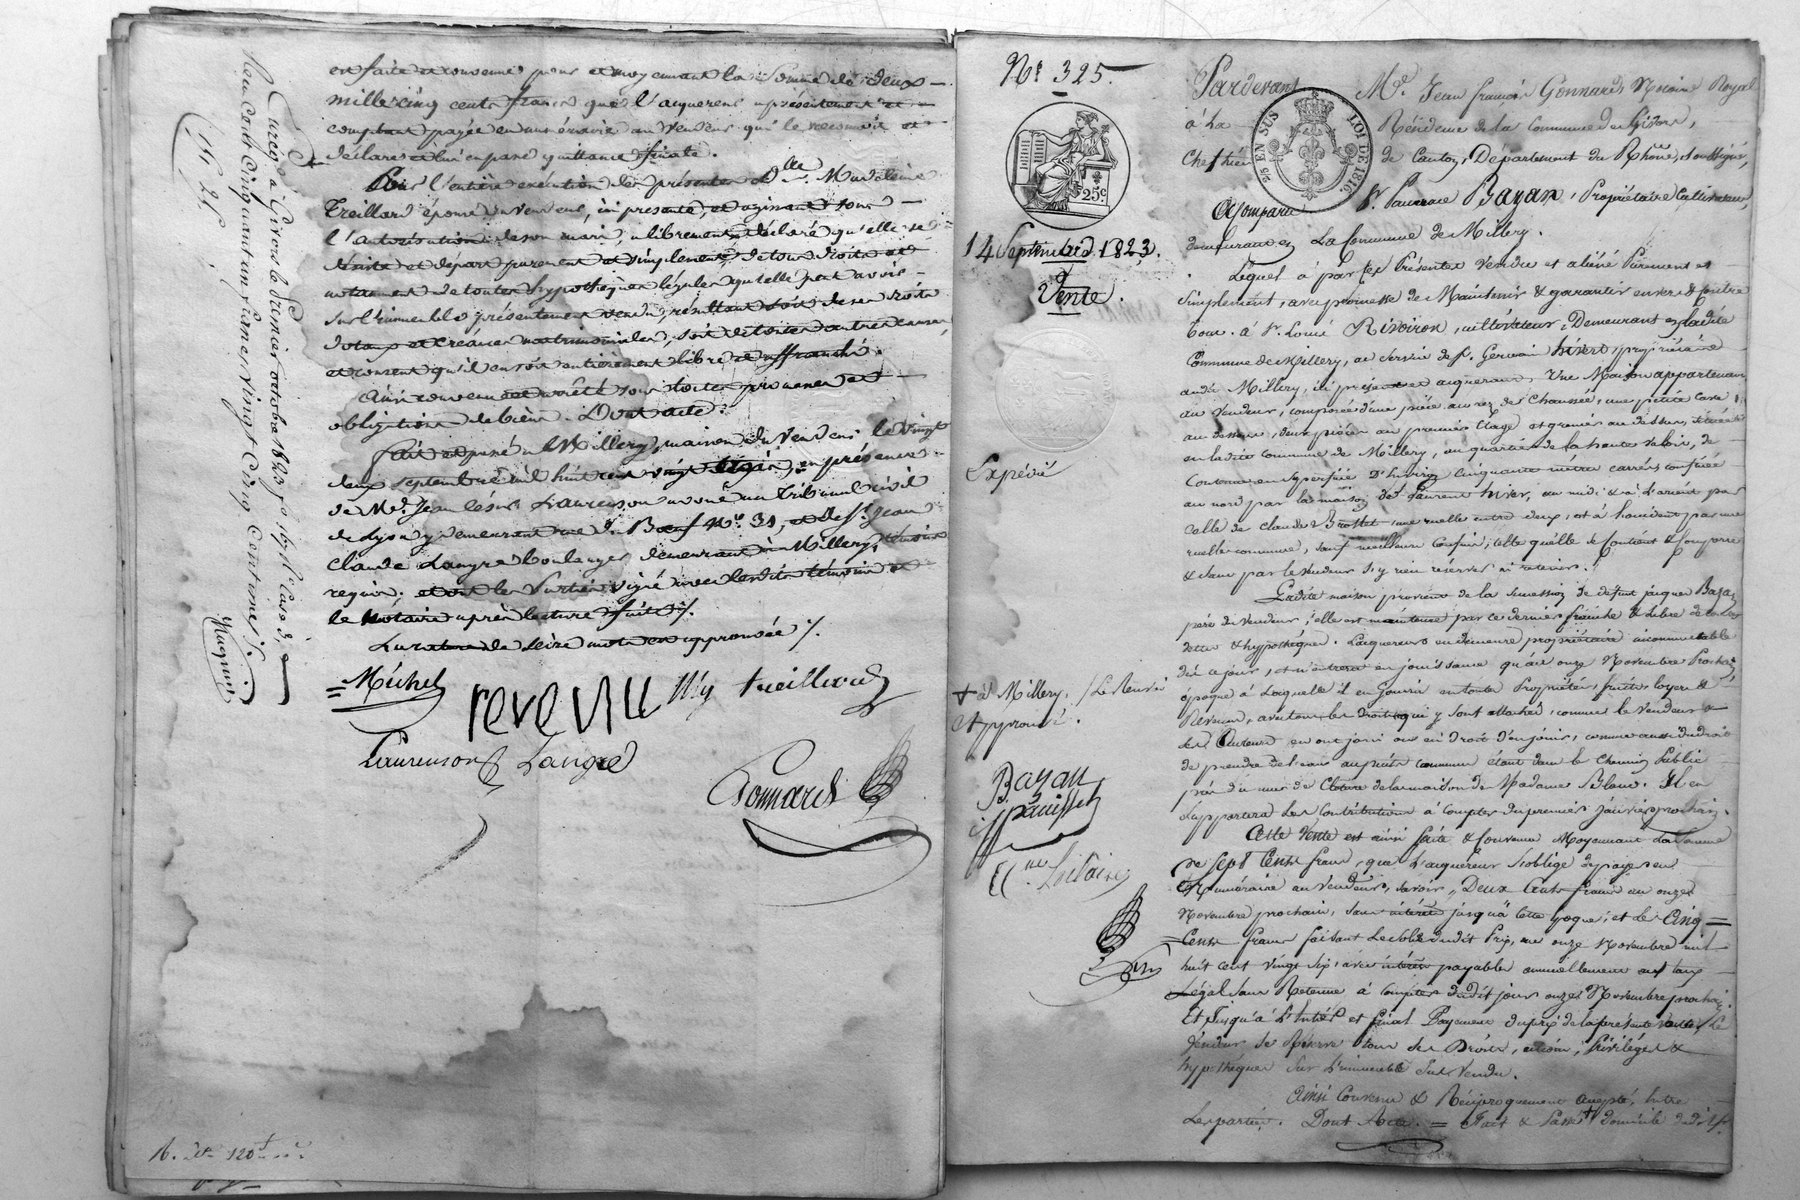 est faite et convenue pour et moyennant la somme de deux
mille cinq cents francs que l'acquereur a présentement et
comptant payée en numéraire au vendeur qui le reconnoit et
déclare et lui en passe quittance finale.
Pour l'entière exécution des présentes Dlle. Madeleine
Treillard épouse du vendeur, ici presente, et agissant sous
l'autorisation de son mari, a librement déclaré qu'elle se
désiste et départ purement et simplement, de tous droits et
notamment de toutes hypothèques légales qu'elle peut avoir
sur l'immeuble présentement vendu, résultant soit de ses droits
dotaux et créances matrimoniales, soit de toutes autres causes,
et consent qu'il en soit entièrement libre et affranchi.
Ainsi convenu et arrêté sous toutes promesses et
obligations de biens. Dont acte:
Fait et passé à Millery, maison du vendeur le vingt
deux septembre mil huit cent vingt trois, en présence
de Me. Jean Laurenson avoué au Tribunal civil
de Lyon y demeurant rue du Bœuf No. 31, et de Sr. Jean
Claude Langre boulanger demeurant à Millery, témoins
requis; et ont les parties signé avec lesdits témoins et
le Notaire après lecture faite ./.
La rature de seize mots est approuvée ./.
Michel reveville My treillard
Laurenson Langre
Gonnard
Enregistré à Givors le premier octobre 1823 fo 167 Vo Case 3,
Reçu Cent cinquante un francs, vingt Cinq Centimes ./.
16. Ct. 120f
No 325.
25c
14 Septembre 1823.
Vente.
Expédié
+ à Millery, / Le Renvoi
Approuvé.
Bazan
25 EN SUS LOI DE 1816
Pardevant Me. Jean françois Gonnard, Notaire Royal
à la Résidence de la Commune de Givors,
Chef lieu de Canton, Département du Rhône, soussigné,
A Comparu Sr. Laurent Bazan, Propriétaire Cultivateur,
demeurant en La Commune de Millery.
Lequel à par ces Présentes Vendu et aliéné Purement et
Simplement, avec promesse de Maintenir & garantir envers & Contre
tous. à Sr. Louis Rivoiron, cultivateur, Demeurant en ladite
Commune de Millery, au service de Sr. Gervais hivert, propriétaire
audit Millery, ici présent et acquereur, Une Maison appartenant
au Vendeur, composée d'une pièce au rez de Chaussée, une petite cave
au dessous, deux pièces au premier Etage et grenier au dessus, située
en ladite commune de Millery, au quartier de la haute
Contenant en Superficie D'environ Cinquante mètres carrés, confinée
au nord par la maison de Laurent hiver, au midi & à L'orient par
celle de Claude Brottet, une ruelle entre deux, et à l'occident par une
ruelle commune, sauf meilleurs confins, telle qu'elle se Contient & Comporte
& sans par le vendeur s'y rien réserver ni retenir.
Ladite maison provient de la succession de défunt jacques Bazan
père du vendeur; elle est maintenue par ce dernier franche & Libre de toutes
dettes & hypothèques. L'acquereur en demeure propriétaire incommutable
dès ce jour, et n'entrera en jouissance qu'au onze Novembre Prochain
époque à Laquelle il en jouira en toute Propriété, fruits, loyers &
Revenus, avec tous les Droits qui y sont attachés, comme le vendeur &
ses Auteurs en ont joui ou eu droit d'en jouir, comme aussi du droit
de prendre de l'eau au puits commun étant dans le Chemin Public
près du mur de Cloture de la maison de Madame Blanc. Il en
Supportera les Contributions à Compter du premier Janvier prochain.
Cette Vente est ainsi faite & Convenue Moyennant La Somme
De Sept Cents francs, que L'acquereur s'oblige de payer en
Numéraire au Vendeur, savoir, Deux Cents francs au onze
Novembre prochain, sans intérêt jusqu'à cette époque; et Le Cinq
Cents francs faisant Le solde dudit Prix, au onze Novembre mil
huit cent vingt six, avec intérêts payables annuellement au taux
Légal sans Retenue à Compter dudit jour onze Novembre prochain.
Et Jusqu'à L'Entier et final Payement du prix de la présente vente, Le
Vendeur se Réserve tous ses Droits, actions, Privilèges &
hypothèques sur L'immeuble Sus Vendu.
Ainsi Convenu & Réciproquement accepté, Entre
Les parties. Dont Acte. = Fait & Passé + domicile dudit Sr.